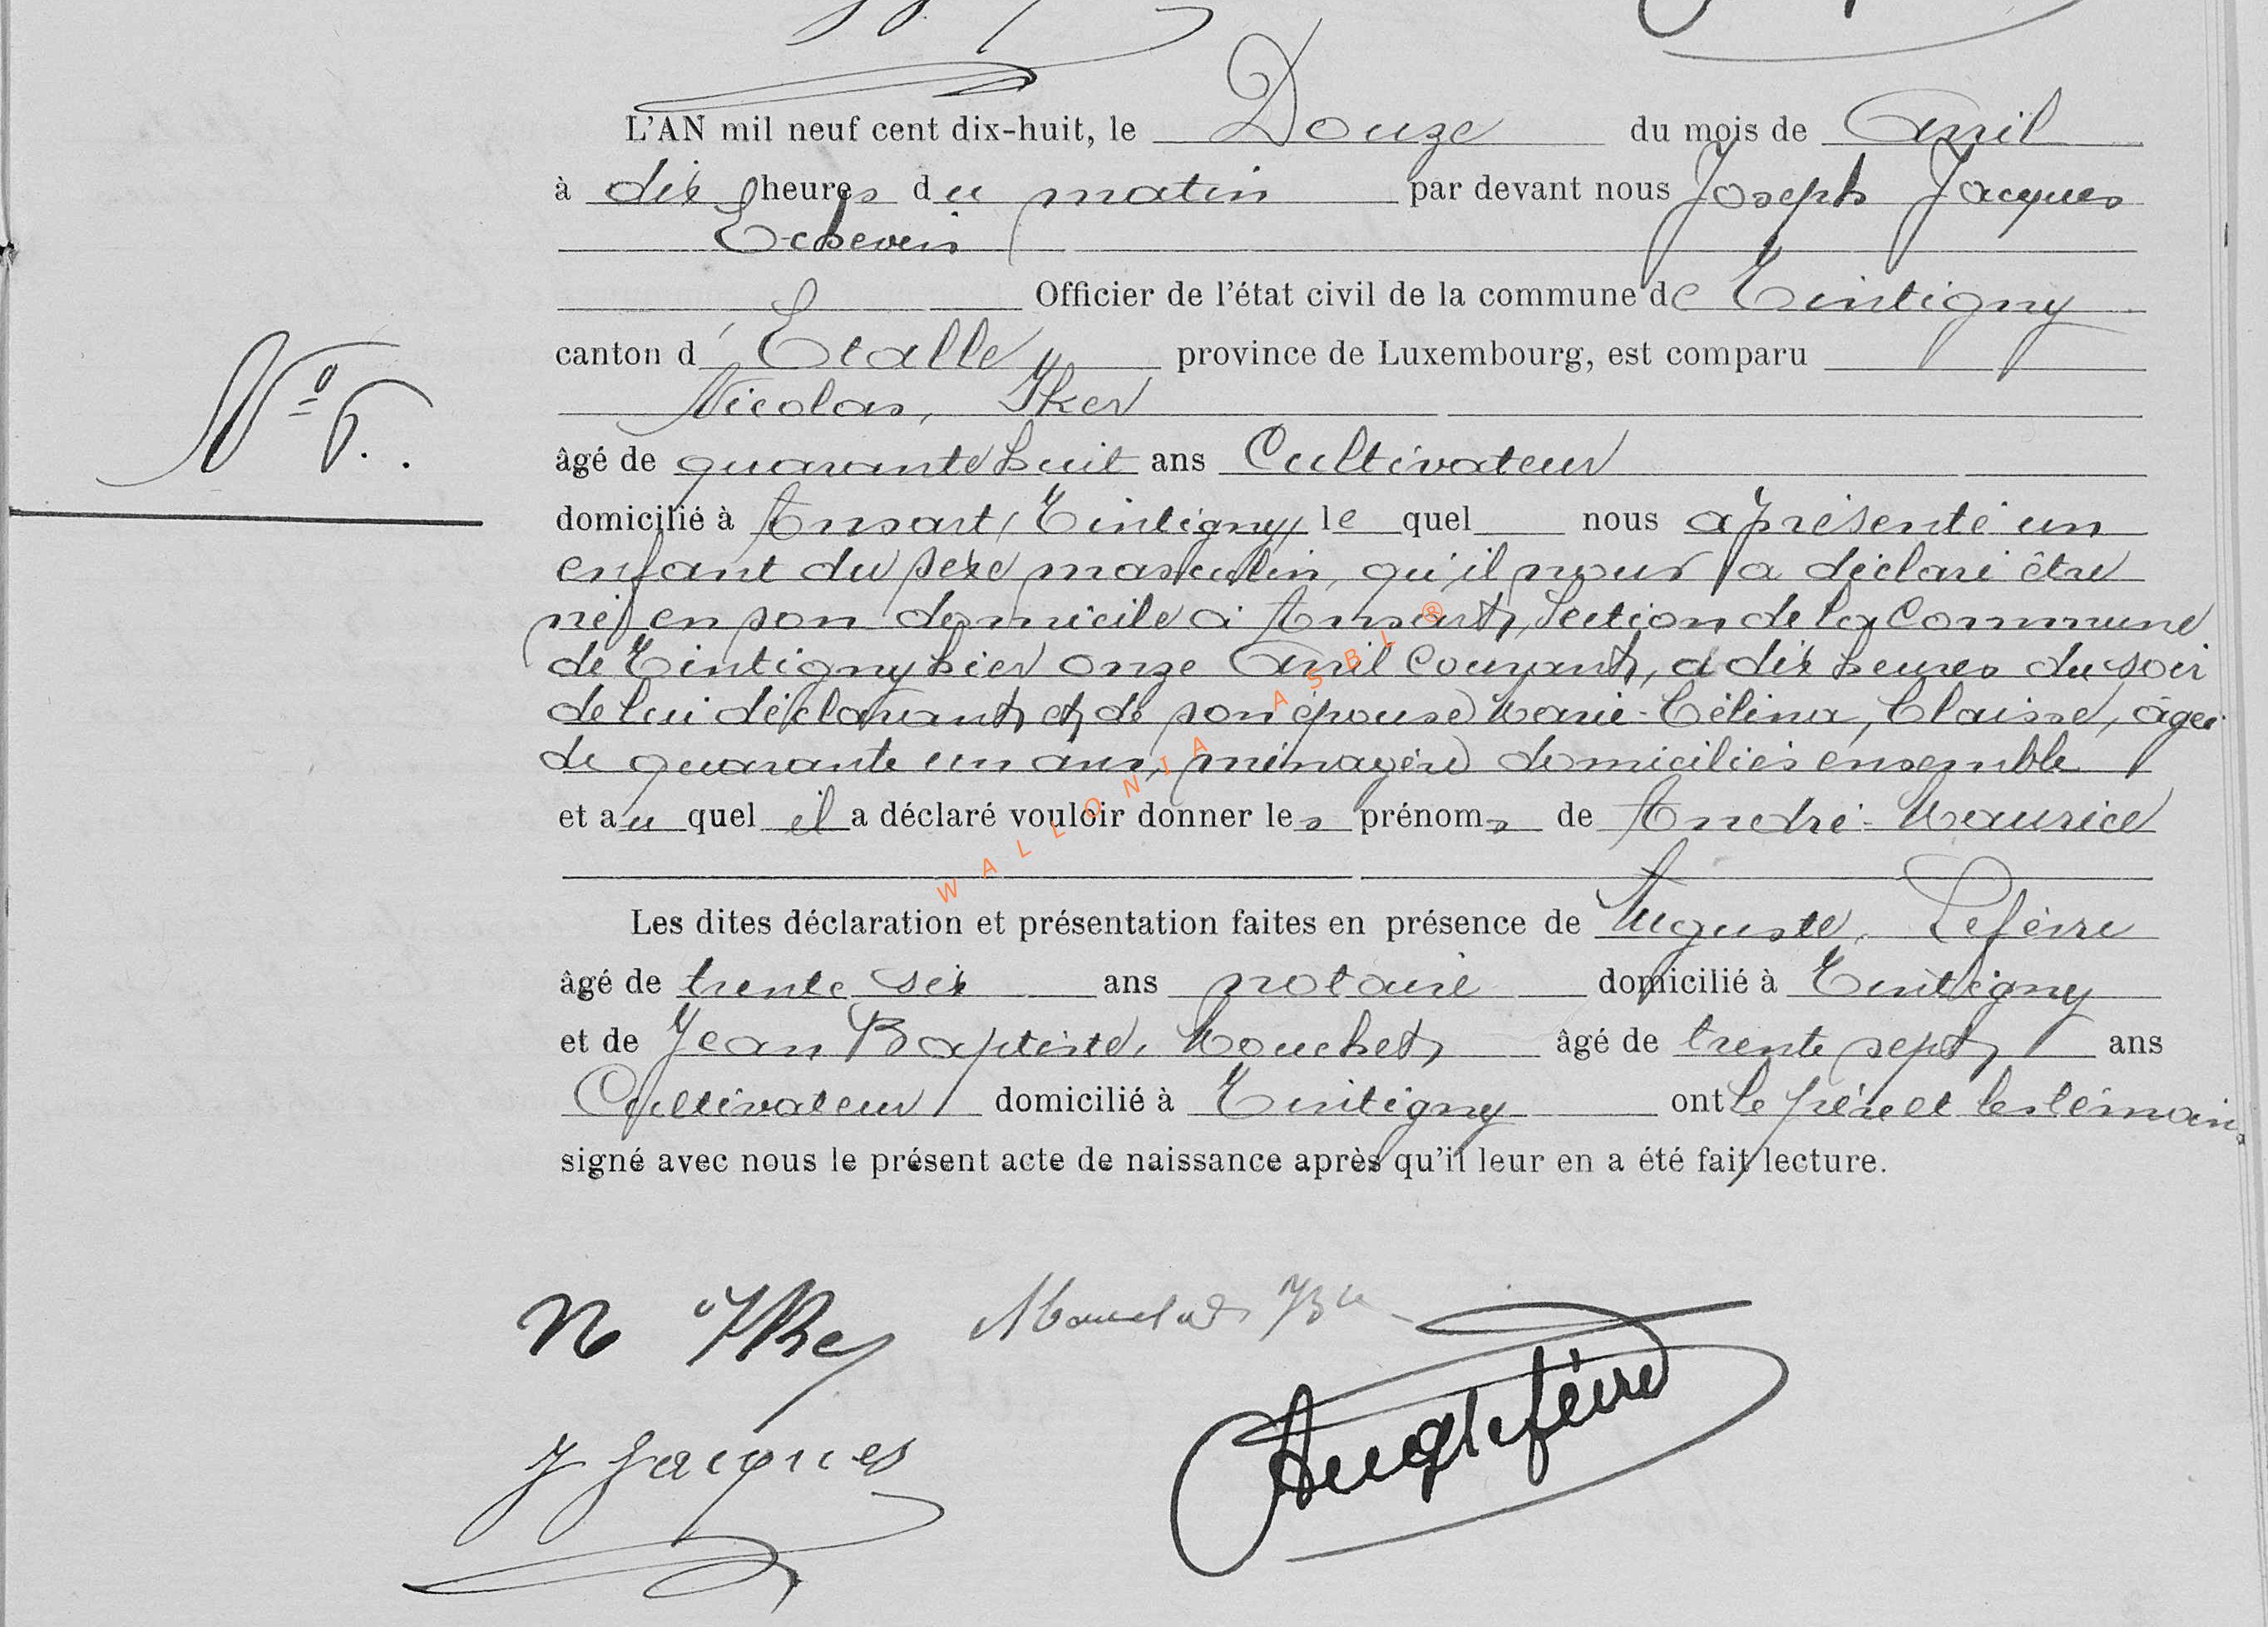 L'AN mil neuf cent dix-huit, le Douze du mois de Avril
à dix heures du matin par devant nous Joseph Jacques
Echevin
Officier de l'état civil de la commune de Tintigny
canton d'Etalle province de Luxembourg, est comparu
Nicolas, Iker
N° 6.
âgé de quarante huit ans Cultivateur
domicilié à Ansart, Tintigny, le quel nous a présenté un
enfant du sexe masculin, qu'il nous a déclaré être
né en son domicile à Ansart, Section de la Commune
de Tintigny hier onze Avril courant, à dix heures du soir
de lui déclarant et de son épouse Marie-Célina, Claisse, âgée
de quarante un ans, ménagère domiciliés ensemble
et au quel il a déclaré vouloir donner les prénoms de André-Maurice
Les dites déclaration et présentation faites en présence de Auguste, Lefèvre
âgé de trente six ans notaire domicilié à Tintigny
et de Jean Baptiste, Mouchet âgé de trente sept ans
Cultivateur domicilié à Tintigny ont le père et les témoins
signé avec nous le présent acte de naissance après qu'il leur en a été fait lecture.
N Iker
J Jacques
Aug Lefèvre
WALLONIA ASBL ®